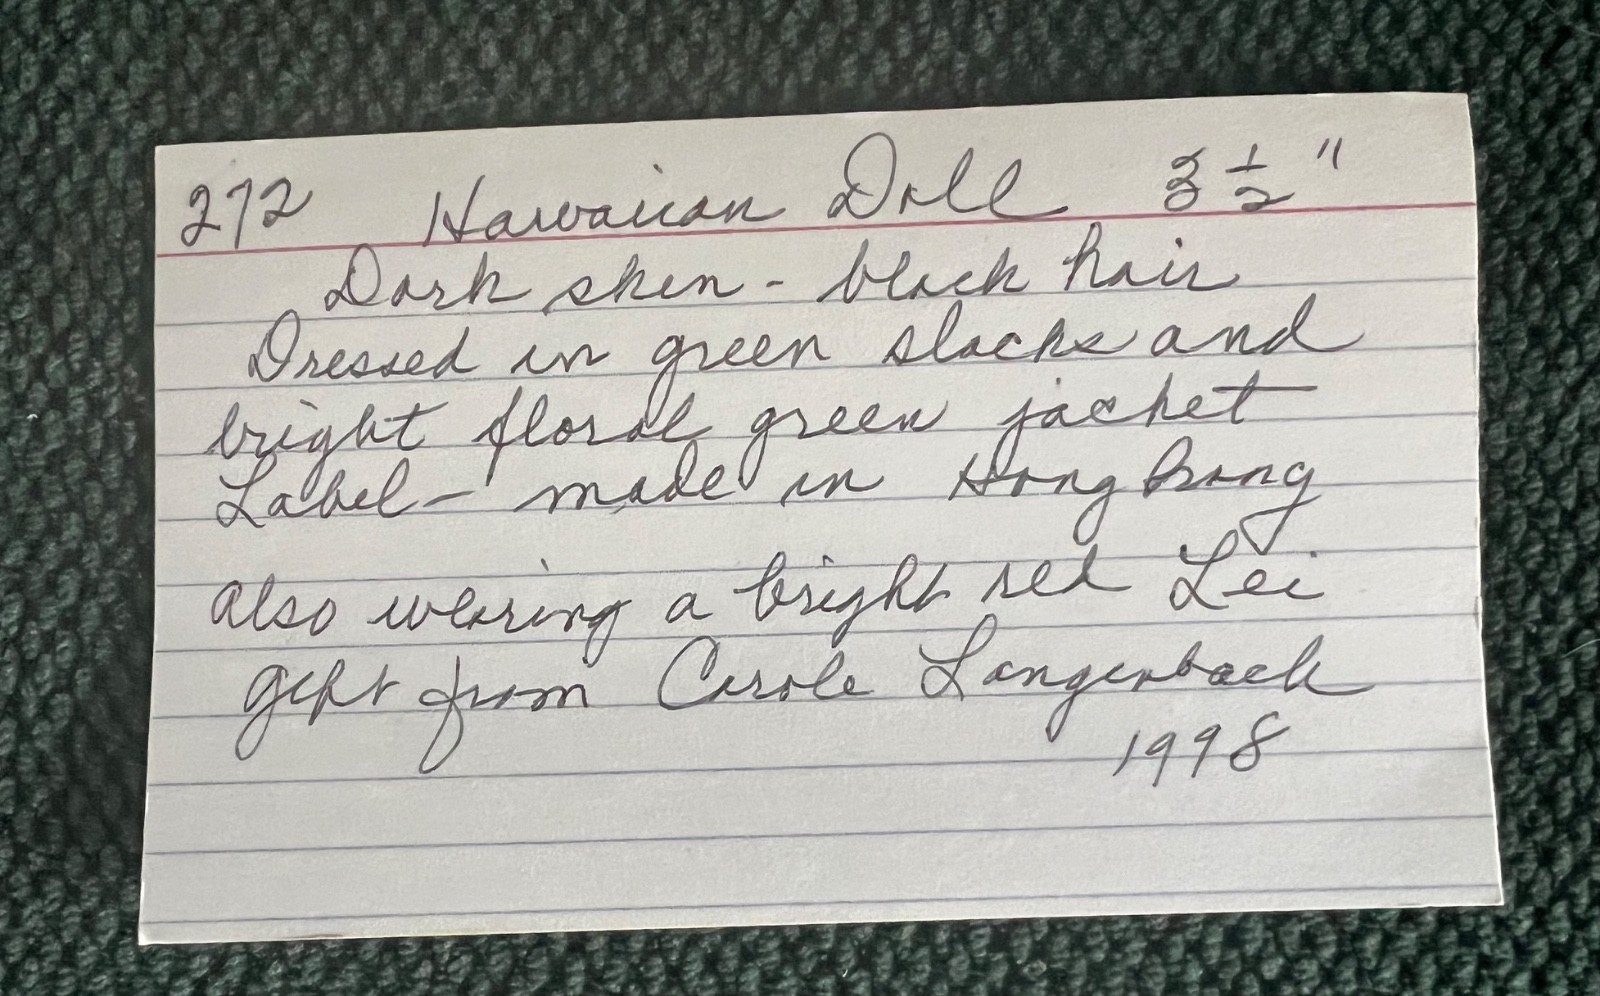 272 Hawaiian Doll 3 1/2 "
Dark skin - black hair
Dressed in green slacks and
bright floral green jacket
Label - made in Hong Kong
also wearing a bright red Lei
gift from Carole Langenback
1998